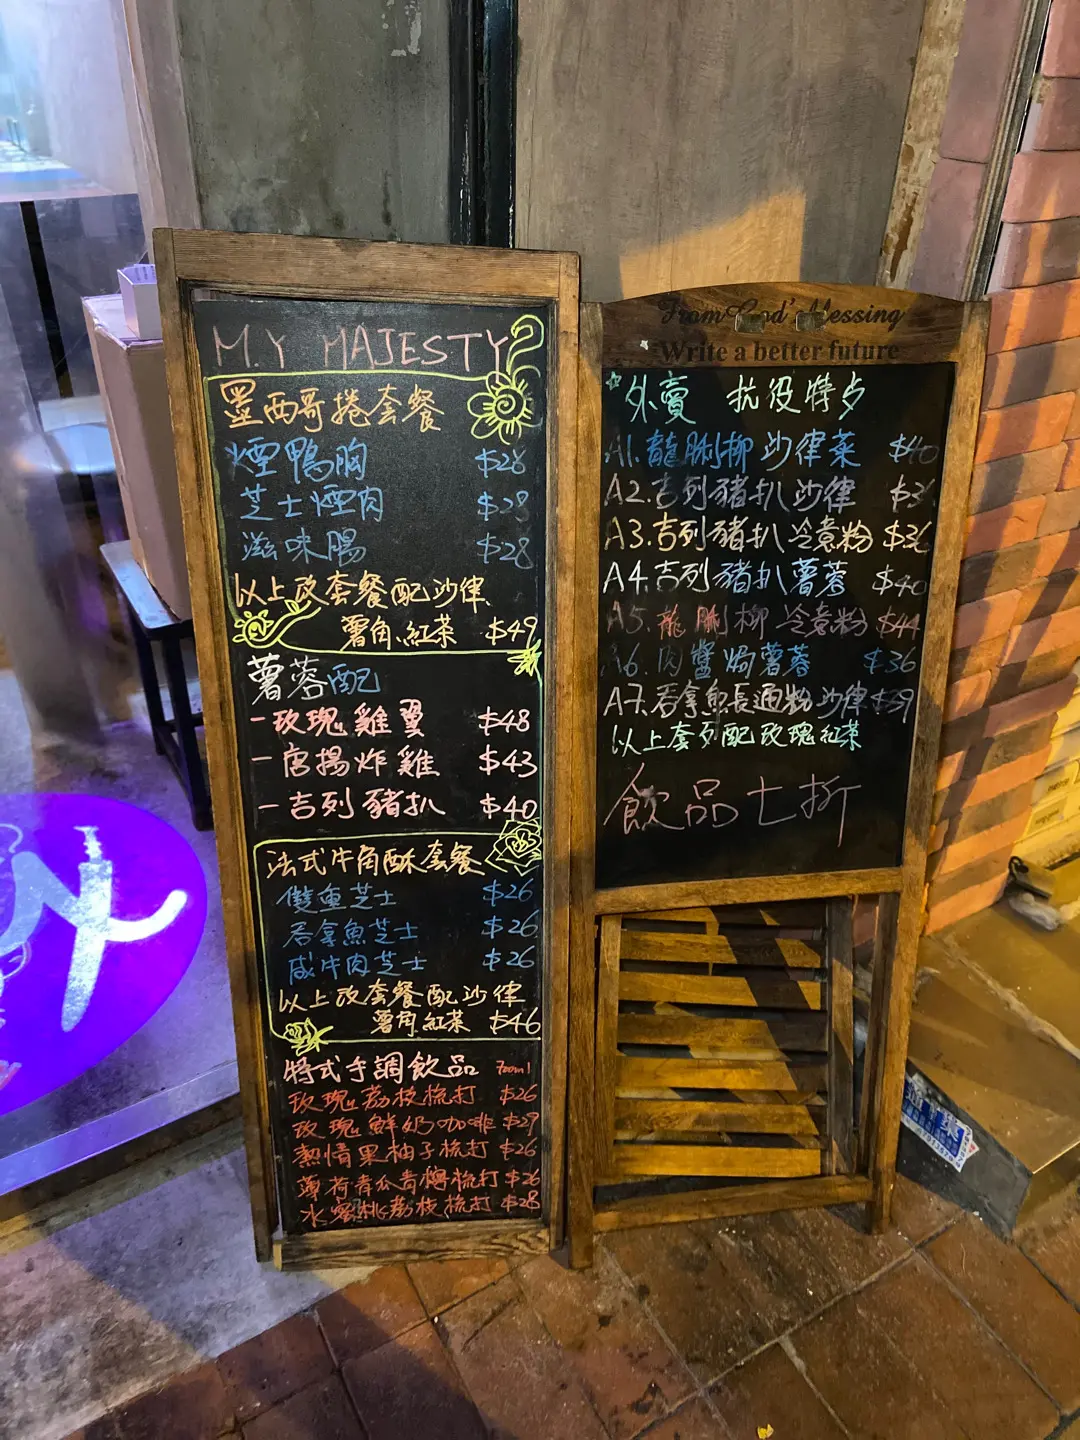 M.Y MAJESTY
墨西哥捲套餐
煙鴨胸 $28
芝士煙肉 $28
滋味腸 $28
以上改套餐配沙律、
薯角、紅茶 $49
薯蓉配
-玫瑰雞翼 $48
-唐揚炸雞 $43
-吉列豬扒 $40
法式牛角酥套餐
雙重芝士 $26
吞拿魚芝士 $26
咸牛肉芝士 $26
以上改套餐配沙律
薯角、紅茶 $46
特式手調飲品 700ml
玫瑰荔枝梳打 $26
玫瑰鮮奶咖啡 $29
熱情果柚子梳打 $26
薄荷青瓜青檸梳打 $26
水蜜桃荔枝梳打 $28
From God' blessing
Write a better future
外賣 抗役特步
A1.龍脷柳沙律菜 $40
A2.吉列豬扒沙律
A3.吉列豬扒冷意粉 $36
A4.吉列豬扒薯蓉 $40
A5.龍脷柳冷意粉 $44
A6.肉醬焗薯蓉 $36
A7.吞拿魚長通粉沙律 $39
以上套列配玫瑰紅茶
飲品七折